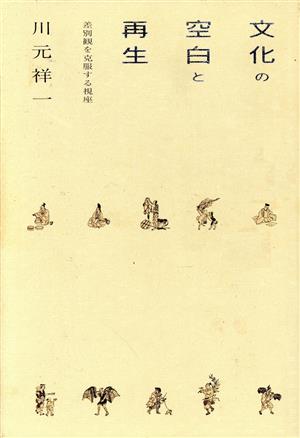 文化の
空白と
再生
差別観を克服する視座
川元祥一